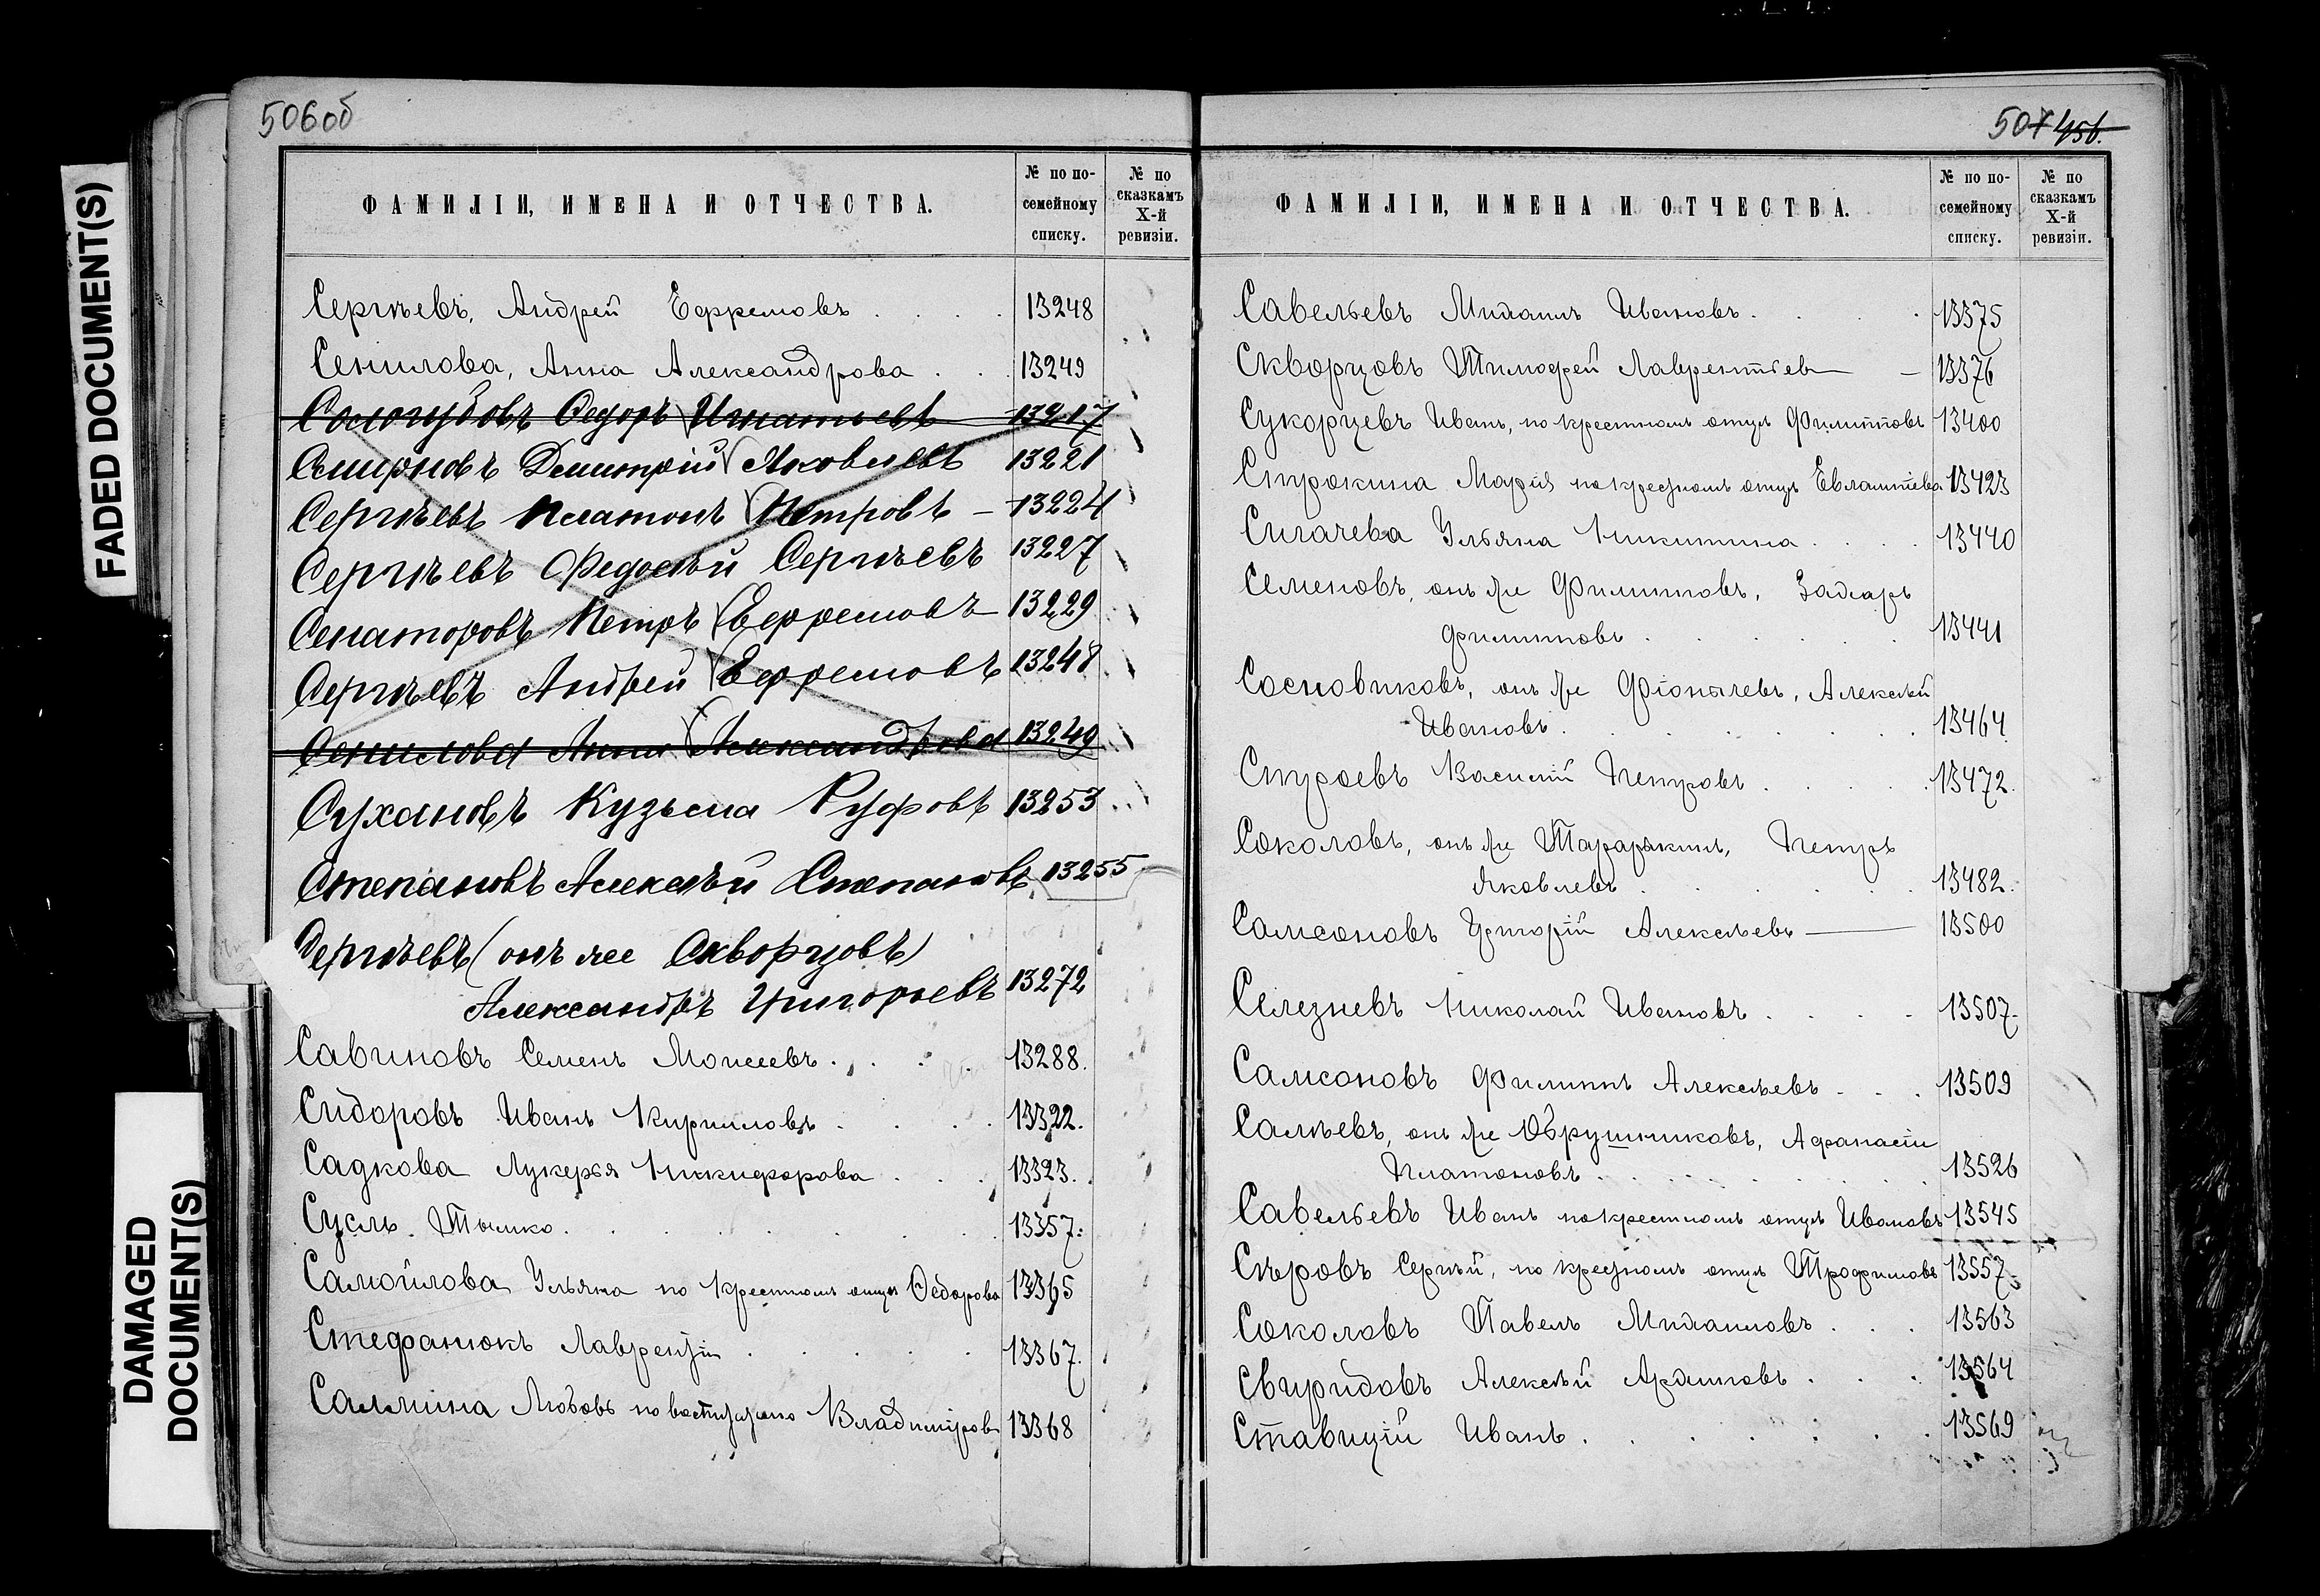 FADED DOCUMENT(S)
DAMAGED
DOCUMENT(S)
506об
ФАМИЛІИ, ИМЕНА И ОТЧЕСТВА.
№ по по-
семейному
списку.
№ по
сказкамъ
X-й
ревизіи.
Сергѣевъ, Андрей Ефремовъ . . . . 13248
Сенилова, Анна Александрова . . . 13249
Сологубовъ Федоръ Игнатьевъ 13217
Смирновъ Дмитрій Яковлевъ 13221
Сергѣевъ Платонъ Петровъ – 13224
Сергѣевъ Федосѣй Сергѣевъ 13227
Сенаторовъ Петръ Ефремовъ 13229
Сергѣевъ Андрей Ефремовъ 13248
Сенилова Анна Александрова 13249
Сухановъ Кузьма Руфовъ 13253
Степановъ Алексѣй Степановъ 13255
Сергѣевъ (онъ же Скворцовъ)
Александръ Григорьевъ 13272
Савиновъ Семенъ Моисеевъ . . . . 13288.
Сидоровъ Иванъ Кириловъ . . . . 13322.
Садкова Лукерья Никифорова . . . 13323.
Сусль . . . . . . . . 13357.
Самойлова Ульяна по крестном отцу Федорова 13365
Стефанюкъ Лаврентій . . . . . 13367.
Салмина Любовь по Владимірова 13368
507 456.
ФАМИЛІИ, ИМЕНА И ОТЧЕСТВА.
№ по по-
семейному
списку.
№ по
сказкамъ
X-й
ревизіи.
Савельевъ Михаилъ Ивановъ . . . . 13375
Скворцовъ Тимофей Лаврентьев — 13376
Сукорцевъ Иванъ, по крестном отцу Филиповъ 13400
Строкина Марія по крестном отцу Евлампіева 13423
Сигачева Ульяна Никитина . . . . 13440
Семеновъ, онъ же Филиповъ, Захаръ
Филиповъ . . . . . . 13441
Сосновиковъ, онъ же Фіонычевъ, Алексѣй
Ивановъ . . . . . . . 13464
Строевъ Василій Петровъ . . . . . 13472.
Соколовъ, онъ же Тараракинъ, Петръ
Яковлевъ . . . . . . 13482.
Самсоновъ Григорій Алексѣевъ — 13500
Селезневъ Николай Ивановъ . . . . 13507.
Самсоновъ Филиппъ Алексѣевъ . . . 13509
Салѣевъ, онъ же Обрушниковъ, Афанасій
Платоновъ . . . . . . . 13526
Савельевъ Иванъ по крестном отцу Ивановъ 13545
Сѣровъ Сергѣй, по крестном отцу Трофимовъ 13557.
Соколовъ Павелъ Михаиловъ . . . 13563
Свиридовъ Алексѣй Архиповъ . . . 13564
Ставицкій Иванъ . . . . . . . 13569